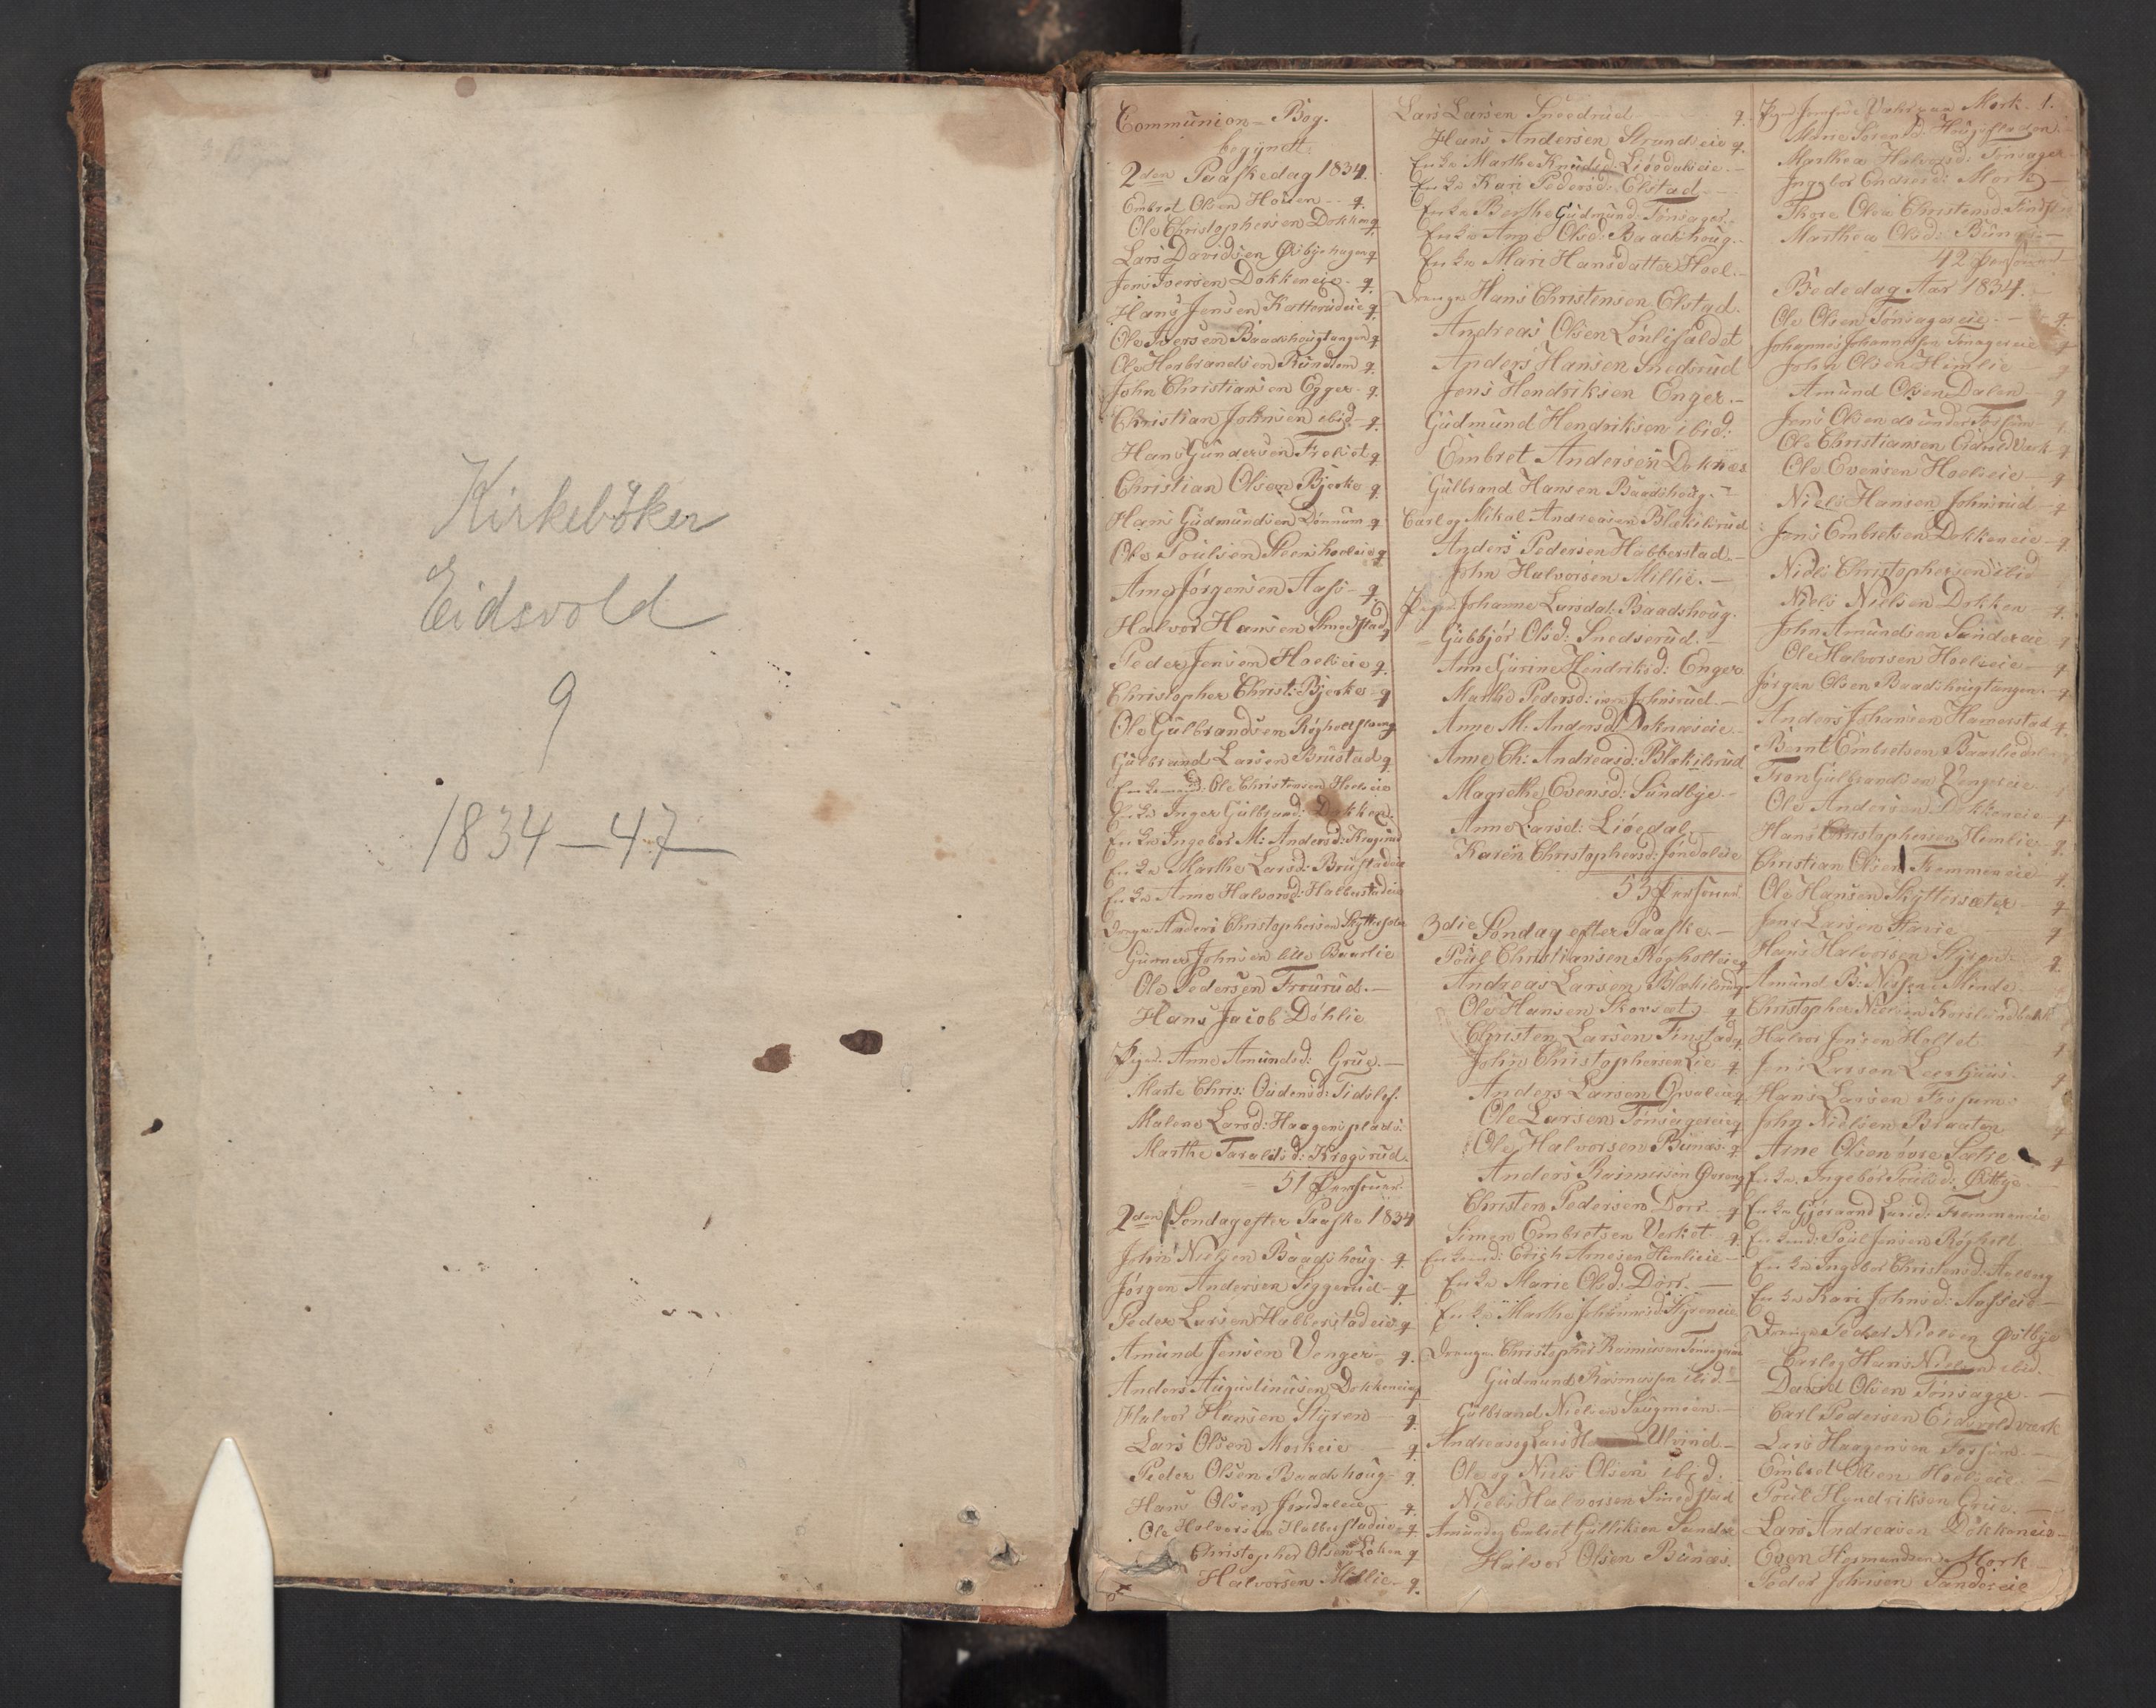 Kirkeböker
Eidsvold
9
1834–47
Communion-Bog.
begyndt
2den Paaskedag 1834.
Embret Olsen Housen – q.
Ole Christophersen Dokken q
Lars Davidsen Østbyehagen q
Jens Iversen Dokkeneie – q.
Hans Jensen Katterudeie q
Ole Iversen Baadshougtangen q
Ole Herbrandsen Rundtom q.
John Christiansen Egger – q.
Christian Johnsen ibid – q.
Hans Gundersen q
Christian Olsen Bjerke q
Hans Gudmundsen Dønnum q
Ole Poulsen q
Arne Jørgensen Aass – q.
Halvor Hansen Smedstad q
Peder Jensen Hoelseie q.
Christopher Christ: Bjerke – q
Ole Gulbrandsen q
Gulbrand Larsen Brustad q
Enkemand Ole Christensen Hoelseie
Enke Inger Gulbrand: Dokken
Enke Ingebor M: Andersd: Krogsrud
Enke Marthe Larsd: Brustadeie
Enke Anne Halvorsd: Halberstadeie
Drenge Anders Christophersen
Gunner Johnsen lille Baarlie
Ole Pedersen Frourud. –
Hans Jacob Döhlie
Piger. Anne Amundsd: Grue. –
Marte Chris: Oudensd:
Malene Larsd: Haagensplads:
Marthe Taraldsd: Krogsrud.
51 Personer
2den Søndag efter Paaske 1834
John Nielsen Baadshoug – q
Jørgen Andersen Siggerud – q
Peder Larsen Habberstadeie q
Amund Jensen Venger – q.
Anders Augustinusen Dokkeneie q
Halvor Hansen Styren – q.
Lars Olsen Morkeie – q
Peder Olsen Baadshoug – q
Hans Olsen Jøndaleie – q
Ole Halvorsen Habberstadeie – q
Christopher Olsen Løken q
Halvorsen Millie – q.
Lars Larsen Sneedsrud q.
Hans Andersen Strandeie q.
Enke Marthe Knudsd: Liøedalseie. –
Enke Kari Pedersd: Elstad
Enke Berthe Gudmund: Tønsager. –
Enke Anne Olsd: Baadshoug –
Enke Mari Hansdatter Hoel. –
Drenge Hans Christensen Elstad.
Andreas Olsen Lønlifaldet
Anders Hansen Snedsrud
Jens Hendriksen Enger. –
Gudmund Hendriksen ibid:
Embret Andersen Doknæs
Gulbrand Hansen Baadshoug. –
Carl og Mikal Andreasen Blækilsrud
Anders Pedersen Habberstad. –
John Halvorsen Millie. –
Piger Johanne Larsdat: Baadshoug.
Gubbjør Olsd: Snedserud. –
Anne Gurine Hendriksd: Enger
Marthe Pedersd: Johnsrud. –
Anne M: Andersd: Doknæseie –
Anne Ch: Andreasd: Blækilsrud
Magrethe Evensd: Sundbye –
Anne Larsd: Liøedal –
Karen Christophersd: Jøndaleie
53 Personer
3die Søndag efter Paaske. –
Poul Christiansen Røgholteie q
Andreas Larsen Blækilsrud q
Ole Hansen Skovsæt q
Christen Larsen Finstad q
John Christophersen Lie q
Anders Larsen Opsaleie q
Ole Larsen Tønsagereie q
Ole Halvorsen Bunæs q
Anders Rasmusen q
Christen Pedersen Dorr – q
Simen Embretsen Verket – q.
Enkemd: Erich Arnesen Himlieie –
Enke Marie Olsd: Dorr. –
Enke Marthe Johannesd: Styreneie
Drenge. Christopher Rasmusen
Gudmund Rasmussen ibid –
Gulbrand Nielsen Saugmoen. –
Andreas og Lars Ulvind –
Ole og Niels Olsen ibid:
Niels Halvorsen Smedstad
Amund og Embret Gulliksen Sundet
Halvor Olsen Bunæs.
1.
Mork.
Marthea Halvorsd: Tønsager
Ingebor Endresd: Mork –
Marthea Olsd: Bunæs –
42 Personer
Bededag Aar 1834.
Ole Olsen Tønsagereie – q.
Johannes Johannessen Tønsagereie q
John Olsen Himlie – q
Amund Olsen Dalen – q
Ole Christiansen Eidsvoldværk q
Ole Evensen Hoelseie – q
Niels Hansen Johnsrud – q
Jens Embretsen Dokkeneie – q.
Niels Christophersen ibid
Niels Nielsen Dokken – q.
John Amundsen Sandereie q
Ole Halvorsen Hoelseie – q
Jørgen Olsen Baadshougtangen – q
Anders Johansen Hammerstad q.
Bernt Embretsen
Tron Gulbrandsen Vengereie
Ole Andersen Dokkeneie – q
Hans Christophersen Himlie – q.
Christian Olsen Fremmeneie – q.
Ole Hansen Skyttersæter q
Jens Larsen q
Hans Halvorsen Styren q.
Amund B: Nissen Minde –
Christopher Nielsen
Halvor Jensen Holtet q
Jens Larsen Leerhuus. – q
Hans Larsen Fossum.
John Nielsen Braaten q
Arne Olsen øvre Sæhe q
Enke. Ingebor Poulsd: Østbye
Enke Gjøraand Larsd: Fremmeneie
Enkemd: Poul Jensen Røgholt
Enke Ingebor Christensd:
Enke Kari Johnsd: Aasseie –
Drenge Peder Nielsen Østbye
Carl og Hans Nielsen ibid.
David Olsen Tønsager. –
Carl Pedersen Eidsvoldværk
Lars Haagensen Fossum. –
Embret Olsen Hoelseie. –
Poul Hendriksen Grue. –
Lars Andreasen Dokkeneie –
Even Hermundsen Mork
Peder Johnsen Sandereie